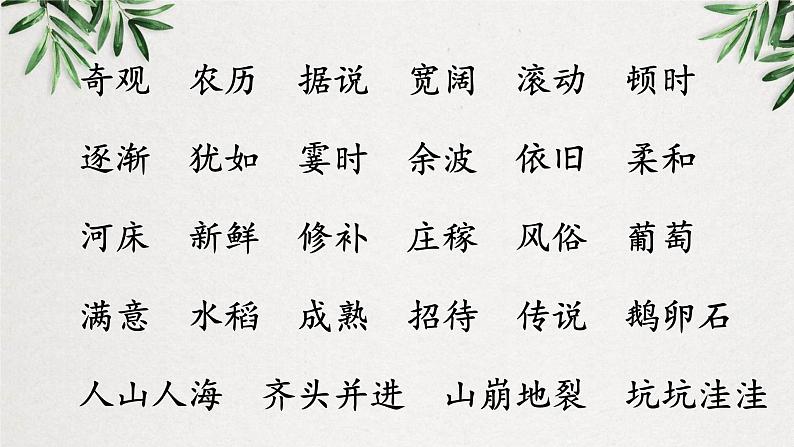 奇观 农历 据说 宽阔 滚动 顿时
逐渐 犹如 霎时 余波 依旧 柔和
河床 新鲜 修补 庄稼 风俗 葡萄
满意 水稻 成熟 招待 传说 鹅卵石
人山人海 齐头并进 山崩地裂 坑坑洼洼